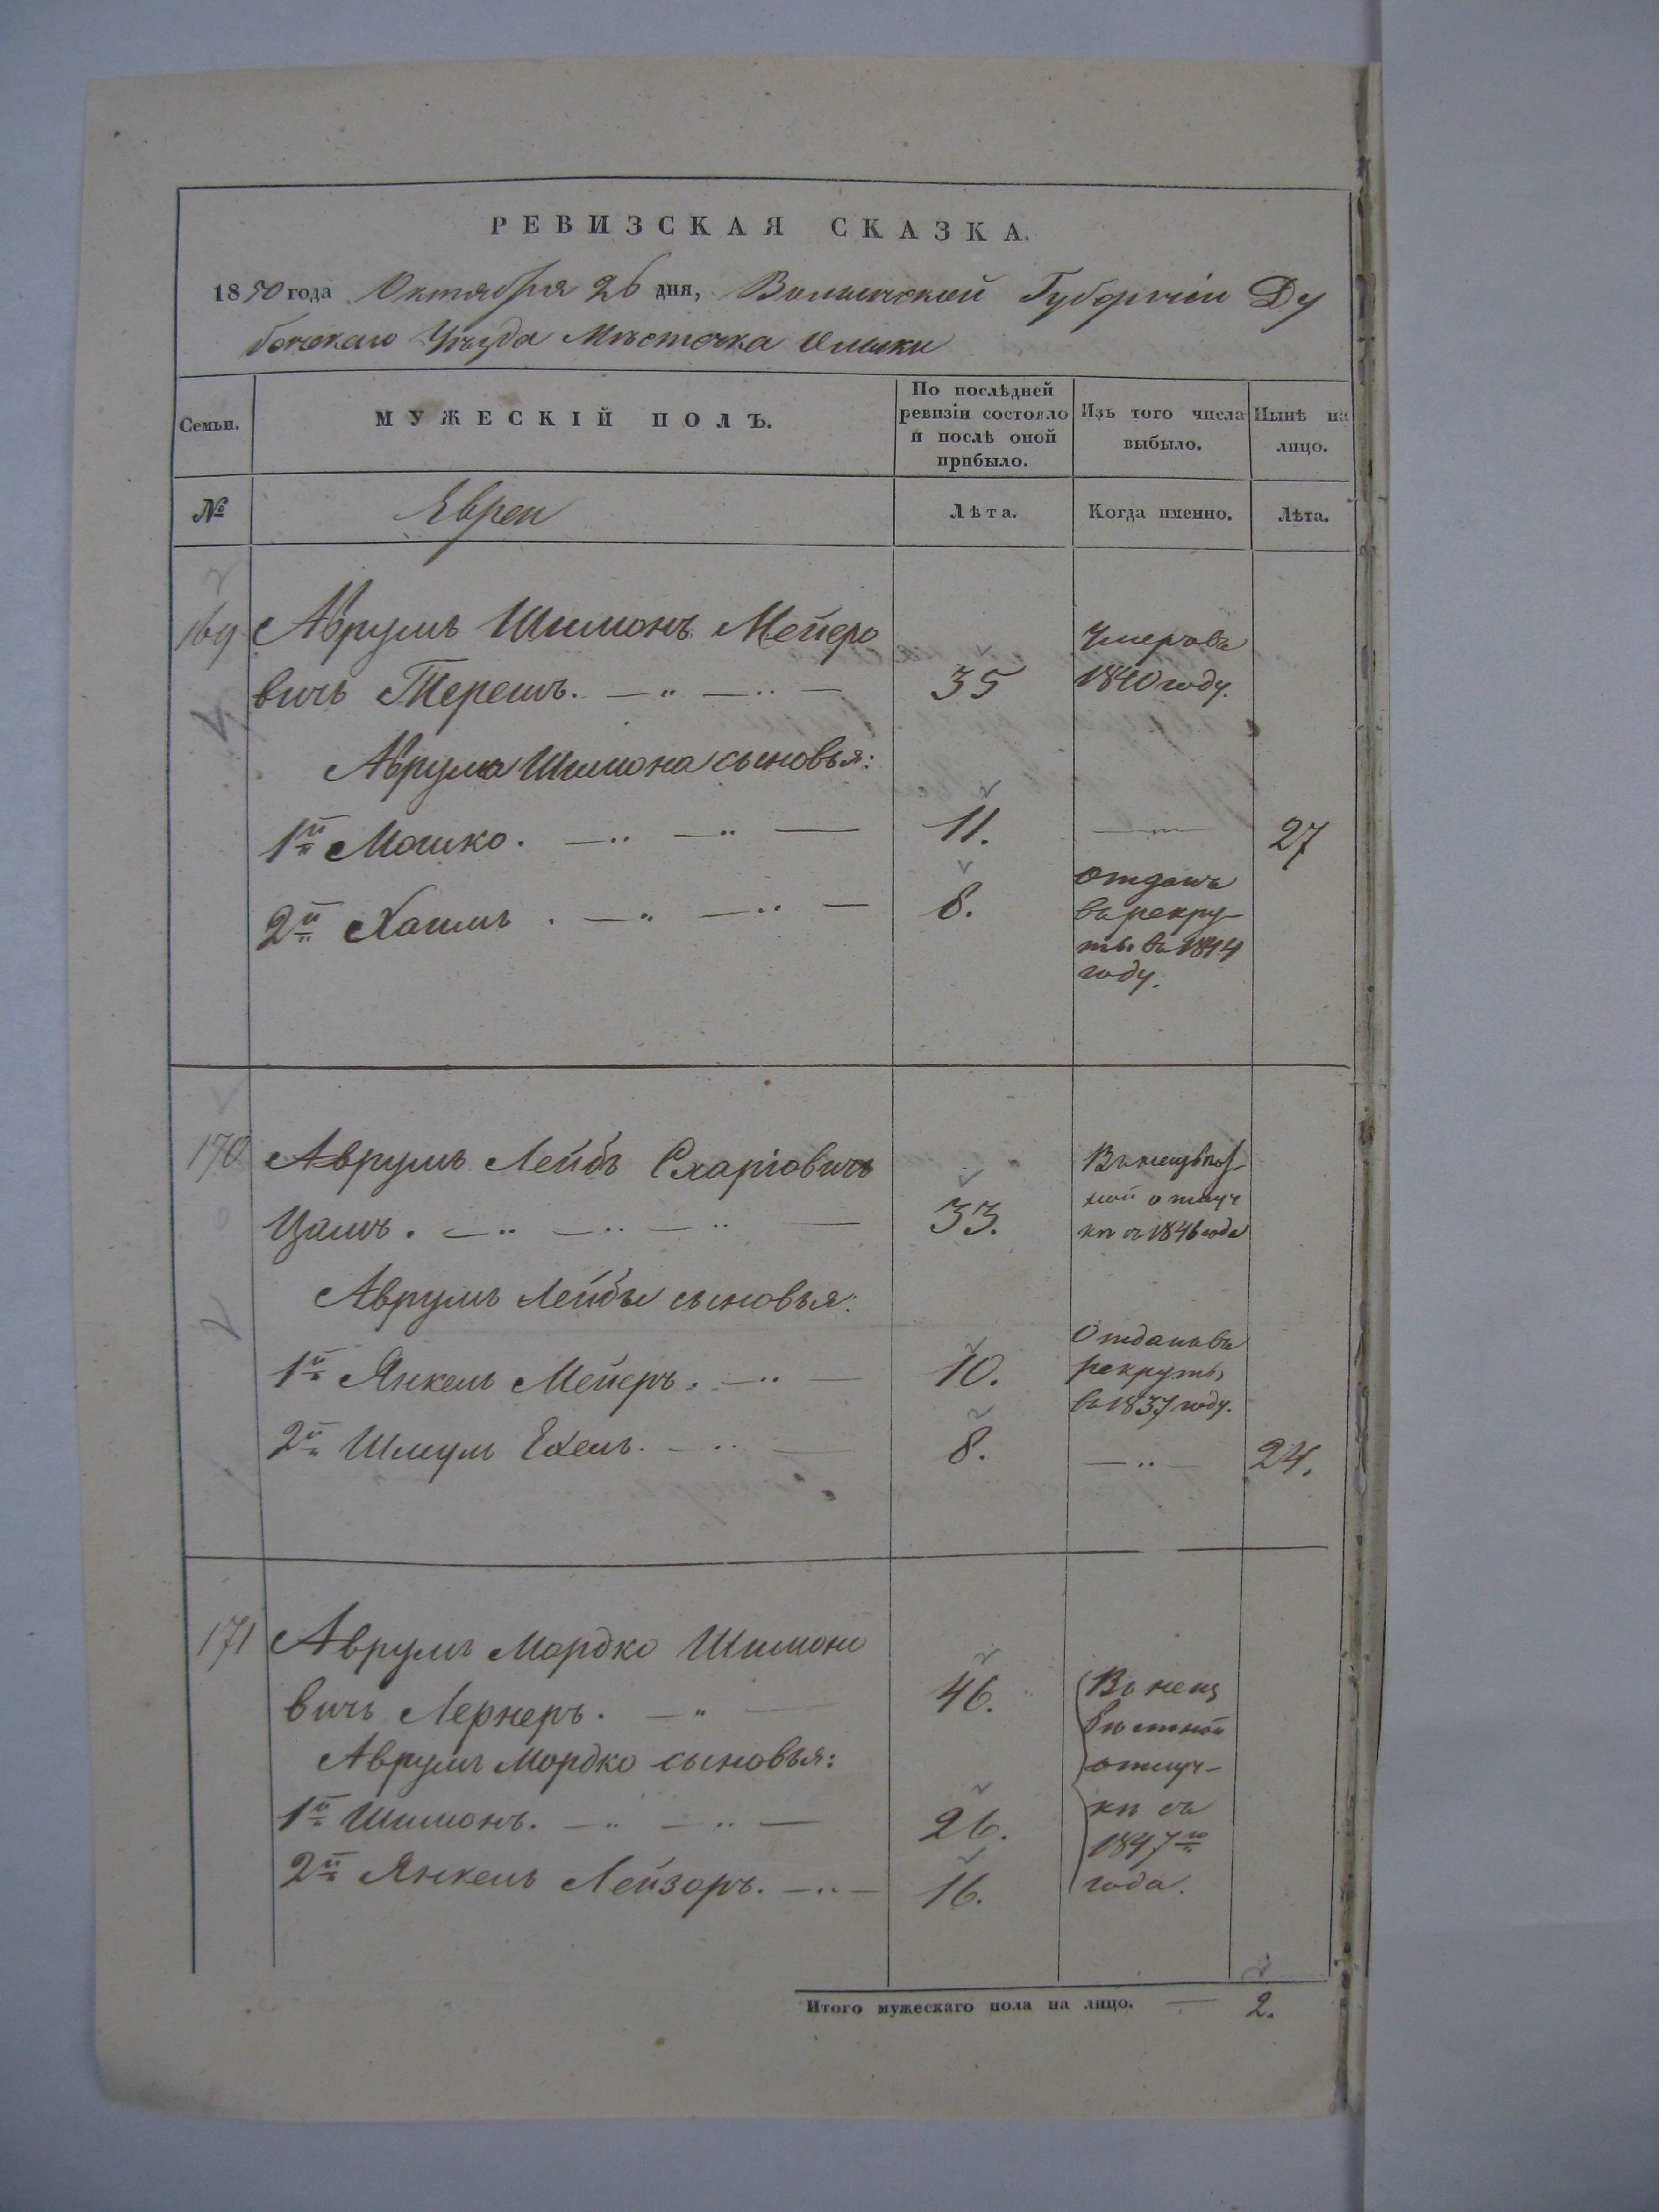 РЕВИЗСКАЯ СКАЗКА.
1850 года Октября 26 дня, Волынской Губерніи Ду
бенскаго Уѣзда Мѣстечка Олыки
Семьи.
МУЖЕСКІЙ ПОЛЪ.
По послѣдней
ревизіи состояло
и послѣ оной
прибыло.
Изъ того числа
выбыло.
Нынѣ на
лицо.
№
Евреи
Лѣта.
Когда именно.
Лѣта.
169 Аврумъ Шимонъ Мейеро
вичъ Терешъ. 35
Умеръ въ
1840 году.
Аврума Шимона сыновья:
1й Мошко. 11. 27
2й Хаимъ. 8.
отданъ
въ рекру-
ты въ 1844
году.
170 Аврумъ Лейбъ Схаріовичъ
Цамъ. 33.
Въ неизвѣст-
ной отлуч
кѣ съ 1846 года
Аврумъ Лейбы сыновья:
1й Янкель Мейеръ. 10.
Отданъ въ
рекруты
въ 1837 году.
2й Шмуль Ехель. 8. 24.
171 Аврумъ Мордко Шимоно
вичъ Лернеръ. 46.
Аврумъ Мордко сыновья:
1й Шимонъ. 26.
2й Янкель Лейзоръ. 16.
Въ неиз
вѣстной
отлуч-
кѣ съ
1847го
года.
Итого мужескаго пола на лицо. — 2.